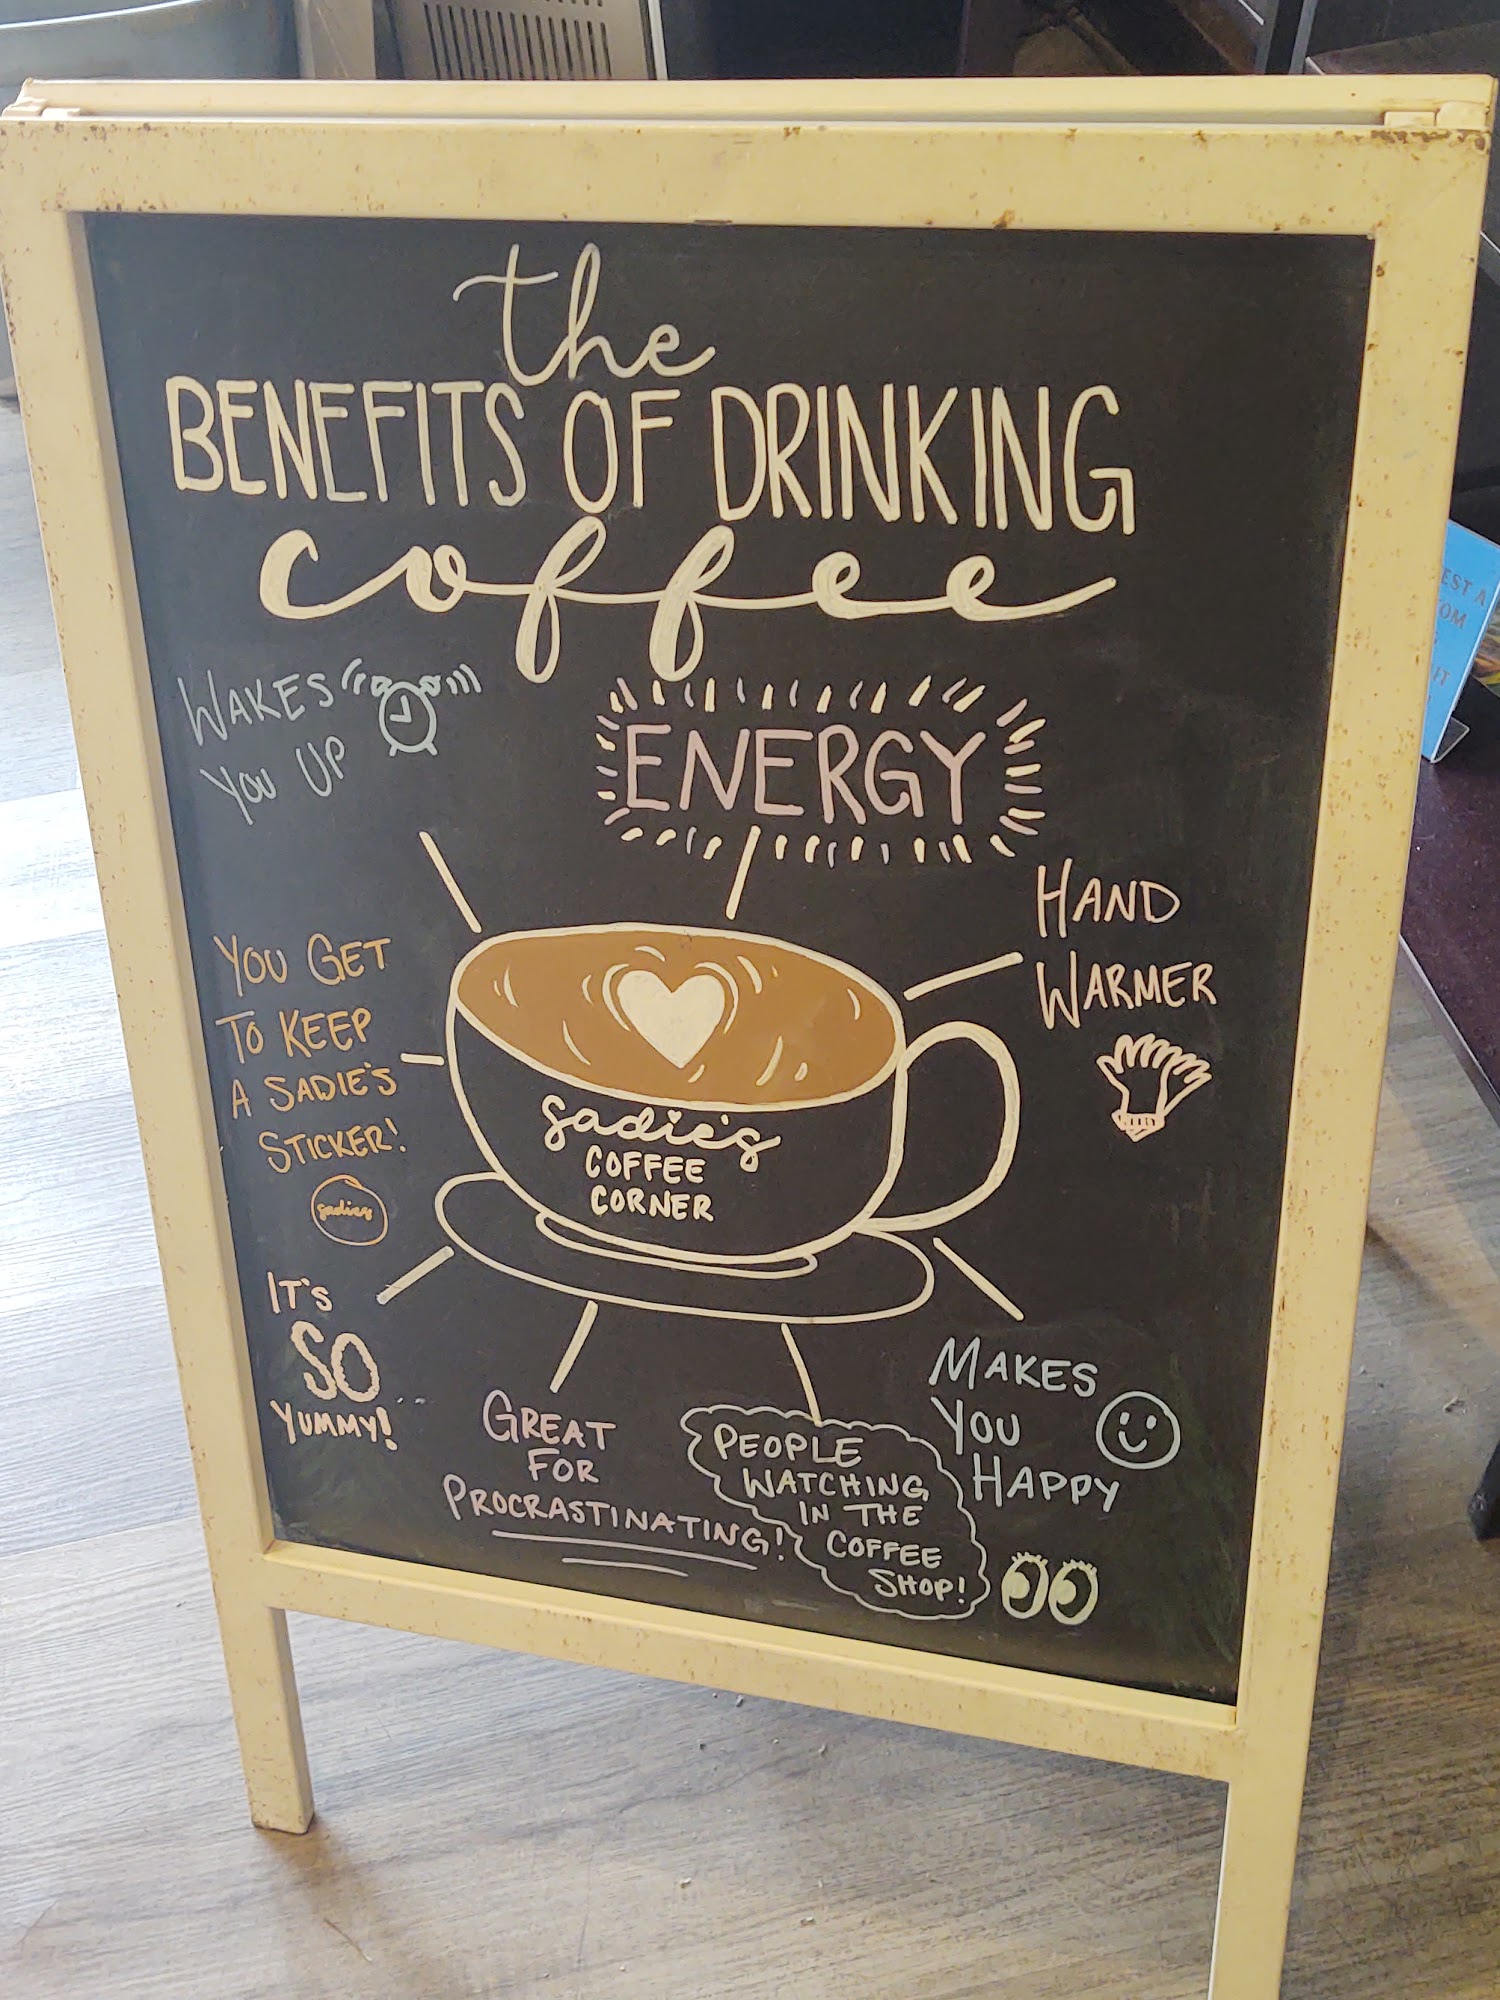 the
BENEFITS OF DRINKING
coffee
WAKES
YOU UP
ENERGY
HAND
WARMER
YOU GET
TO KEEP
A SADIE'S
STICKER!
sadies
sadie's
COFFEE
CORNER
IT'S
SO
YUMMY!
GREAT
FOR
PROCRASTINATING!
PEOPLE
WATCHING
IN THE
COFFEE
SHOP!
MAKES
YOU
HAPPY
EST A